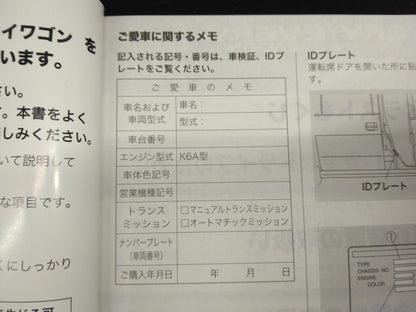 イワゴン を
います。
さい。
す。本書をよく
楽しみください。
いて説明して
な項目です。
くにしっかり
ご愛車に関するメモ
記入される記号・番号は、車検証、IDプ
レートをご覧ください。
ご愛車のメモ
車名および
車両型式
車名：
型式：
車台番号
エンジン型式 K6A型
車体色記号
営業機種記号
トランス
ミッション
□マニュアルトランスミッション
□オートマチックミッション
ナンバープレート
(車両番号)
ご購入年月日 年 月 日
IDプレート
運転席ドアを開いた所に貼
す。
IDプレート
①
TYPE
CHASSIS NO.
ENGINE
COLOR